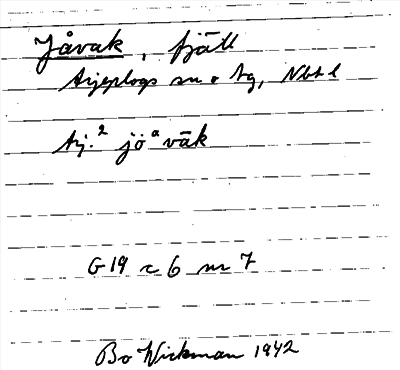 Jåvak, fjäll
Arjeplogs sn o tg, Nbt l
Arj.² jöᵃväk
G19 c 6 nr 7
Bo Wickman 1942